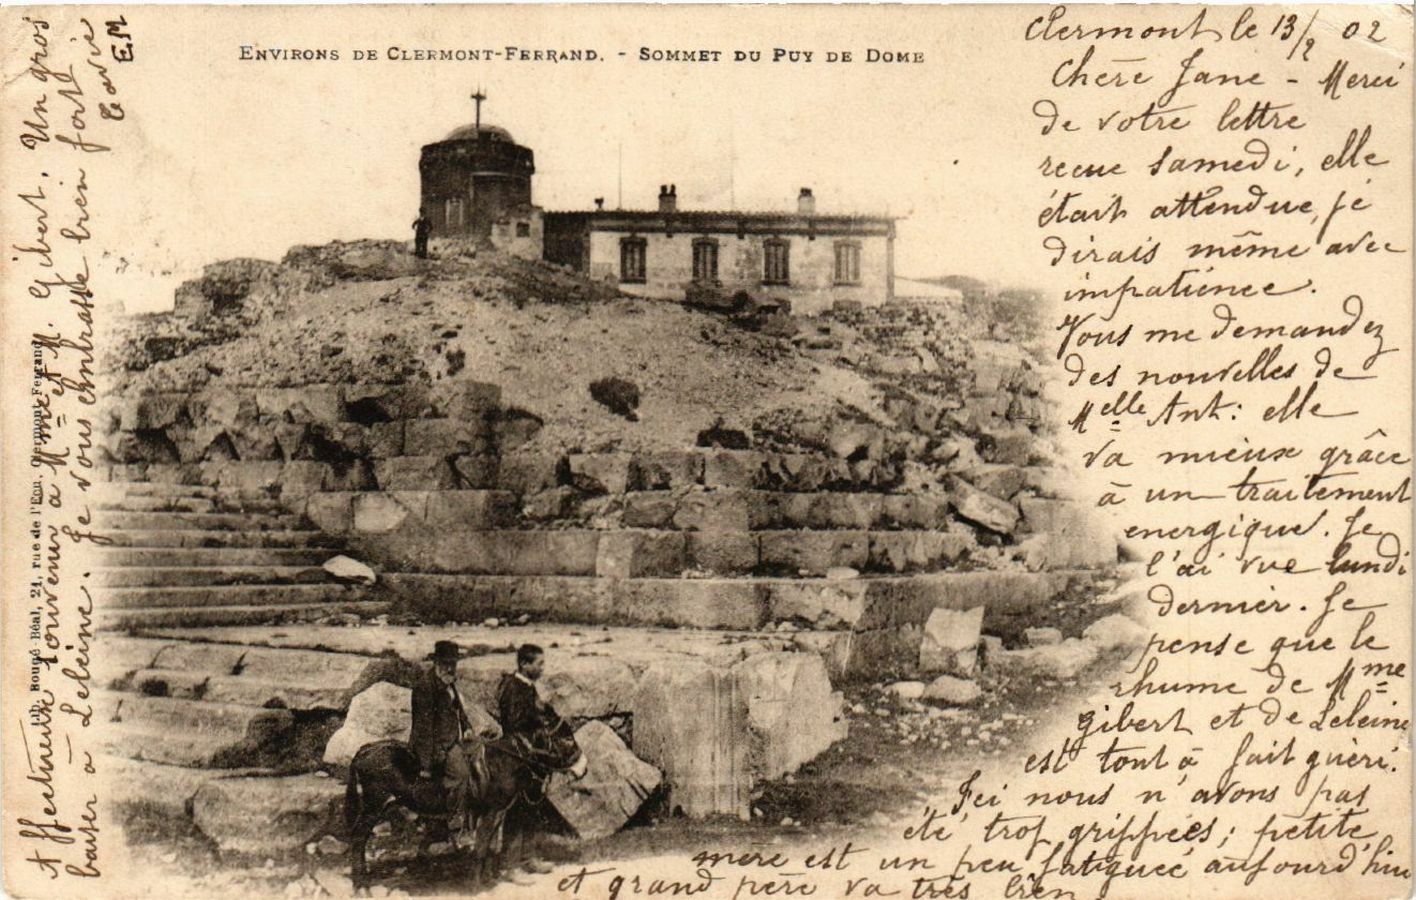 ENVIRONS DE CLERMONT-FERRAND. - SOMMET DU PUY DE DOME
Clermont le 13/2 02
Chère Jane - Merci
de votre lettre
recue samedi, elle
était attendue, je
dirais même avec
impatience.
Vous me demandez
des nouvelles de
Melle Ant: elle
va mieux grâce
à un traitement
energique. Je
l'ai vue lundi
dernier. Je
pense que le
rhume de Mme
Gibert et de Leleine
est tout à fait guèri.
Ici nous n'avons pas
été trop grippées; petite
mère est un peu fatiguée aujourd'hui
et grand père va très bien
Affectueux souvenir à Mme et M. Gibert. Un gros
baiser à Leleine. Je vous embrasse bien fort
E.M
Lib. Bougé-Béal, 21, rue de l'Eco, Clermont-Ferrand